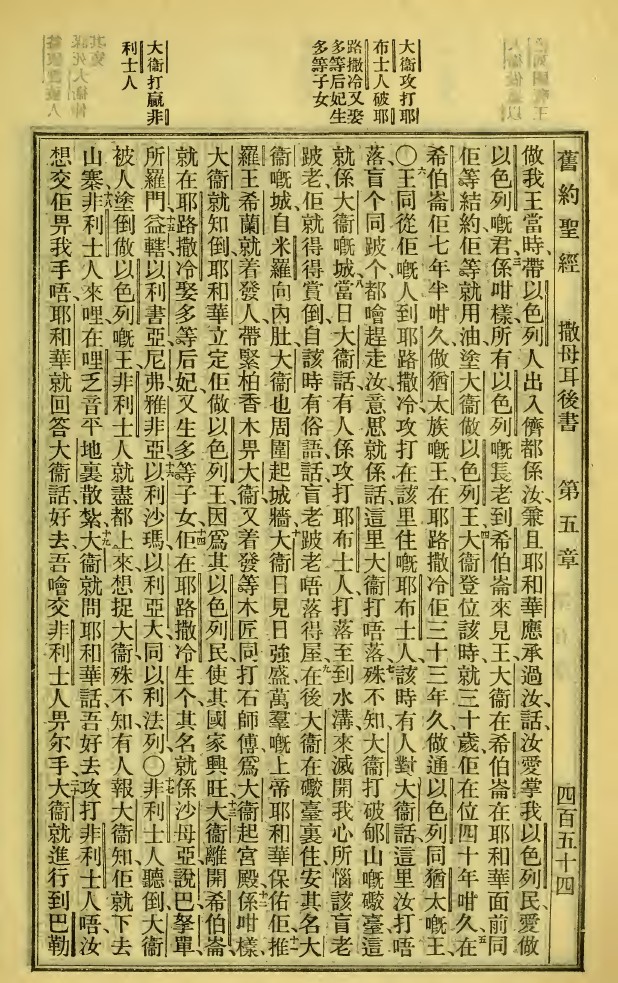 舊約聖經 撒母耳後書 第五章 四百五十四
大衞攻打耶
布士人破耶
路撒冷又娶
多等后妃生
多等子女
大衞打贏非
利士人
做我王當時、帶以色列人出入儕都係汝、兼且耶和華應承過汝、話、汝愛掌我以色列民、愛做
以色列嘅君、三係咁樣所有以色列嘅長老到希伯崙來見王、大衞在希伯崙在耶和華面前同
佢等結約、佢等就用油塗大衞做以色列王、四大衞登位該時就三十歲、佢在位四十年咁久、五在
希伯崙佢七年半咁久做猶太族嘅王、在耶路撒冷佢三十三年久做通以色列同猶太嘅王、
〇六王同從佢嘅人到耶路撒冷、攻打在該里住嘅耶布士人、該時有人對大衞話、這里汝打唔
落、盲个同跛个都噲趕走汝、意思就係話、這里大衞打唔落、七殊不知大衞打破郇山嘅礮臺、這
就係大衞嘅城、八當日大衞話、有人係攻打耶布士人、打落至到水溝、來滅開我心所惱該盲老
跛老、佢就得得賞、倒自該時有俗語話、盲老跛老唔落得屋、九在後大衞在礮臺裏住、安其名大
衞嘅城、自米羅向內肚、大衞也周圍起城牆、十大衞日見日強盛、萬羣嘅上帝耶和華保佑佢、十一推
羅王希蘭就着發人帶緊柏香木畀大衞、又着發等木匠同打石師傅爲大衞起宮殿、十二係咁樣
大衞就知倒耶和華立定佢做以色列王、因爲其以色列民使其國家興旺、十三大衞離開希伯崙
就在耶路撒冷娶多等后妃、又生多等子女、十四佢在耶路撒冷生个其名就係沙母亞、說巴、拏單、
所羅門、十五益轄、以利書亞、尼弗、雅非亞、十六以利沙瑪、以利亞大、同以利法列、〇十七非利士人聽倒大衞
被人塗倒做以色列嘅王、非利士人就盡都上來想捉大衞、殊不知有人報大衞知、佢就下去
山寨、十八非利士人來哩、在哩乏音平地裏散紮、十九大衞就問耶和華話、吾好去攻打非利士人唔、汝
想交佢畀我手唔、耶和華就回答大衞話、好去、吾噲交非利士人畀尔手、二十大衞就進行到巴勒